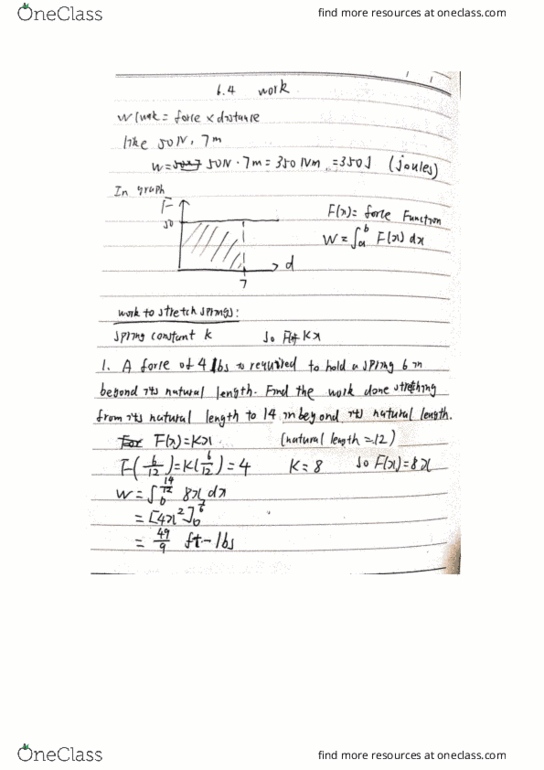 OneClass
find more resources at oneclass.com
6.4 work
W(work = force × distance
like 50N, 7m
W= 50N · 7m = 350 Nm = 350J (joules)
In graph
F
50
d
7
F(x) = force Function
W = ∫ₐᵇ F(x) dx
work to stretch springs:
spring constant k so Kx
1. A force of 4 lbs is required to hold a spring 6 in
beyond its natural length. Find the work done stretching
from its natural length to 14 in beyond its natural length.
For F(x)=Kx. (natural length = 12)
F(6/12)=K(6/12)=4 K=8 so F(x)=8x
W = ∫₀^(14/12) 8x dx
= [4x²]₀^(7/6)
= 49/9 ft-lbs
OneClass
find more resources at oneclass.com